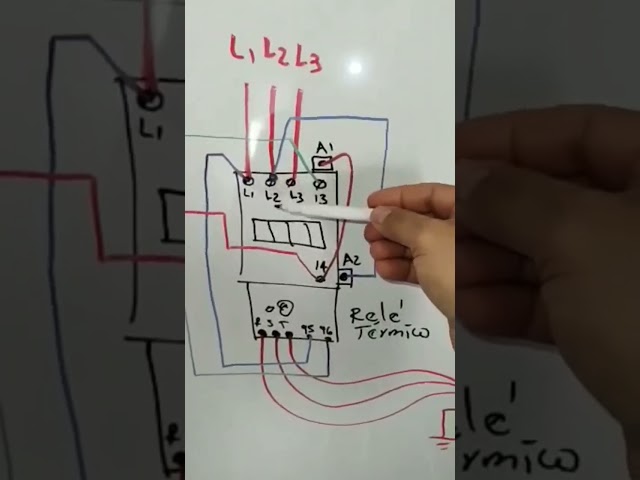 L1 L2 L3
A1
L1 L2 L3 13
14 A2
R S T 95 96
Relé
Térmico
L1